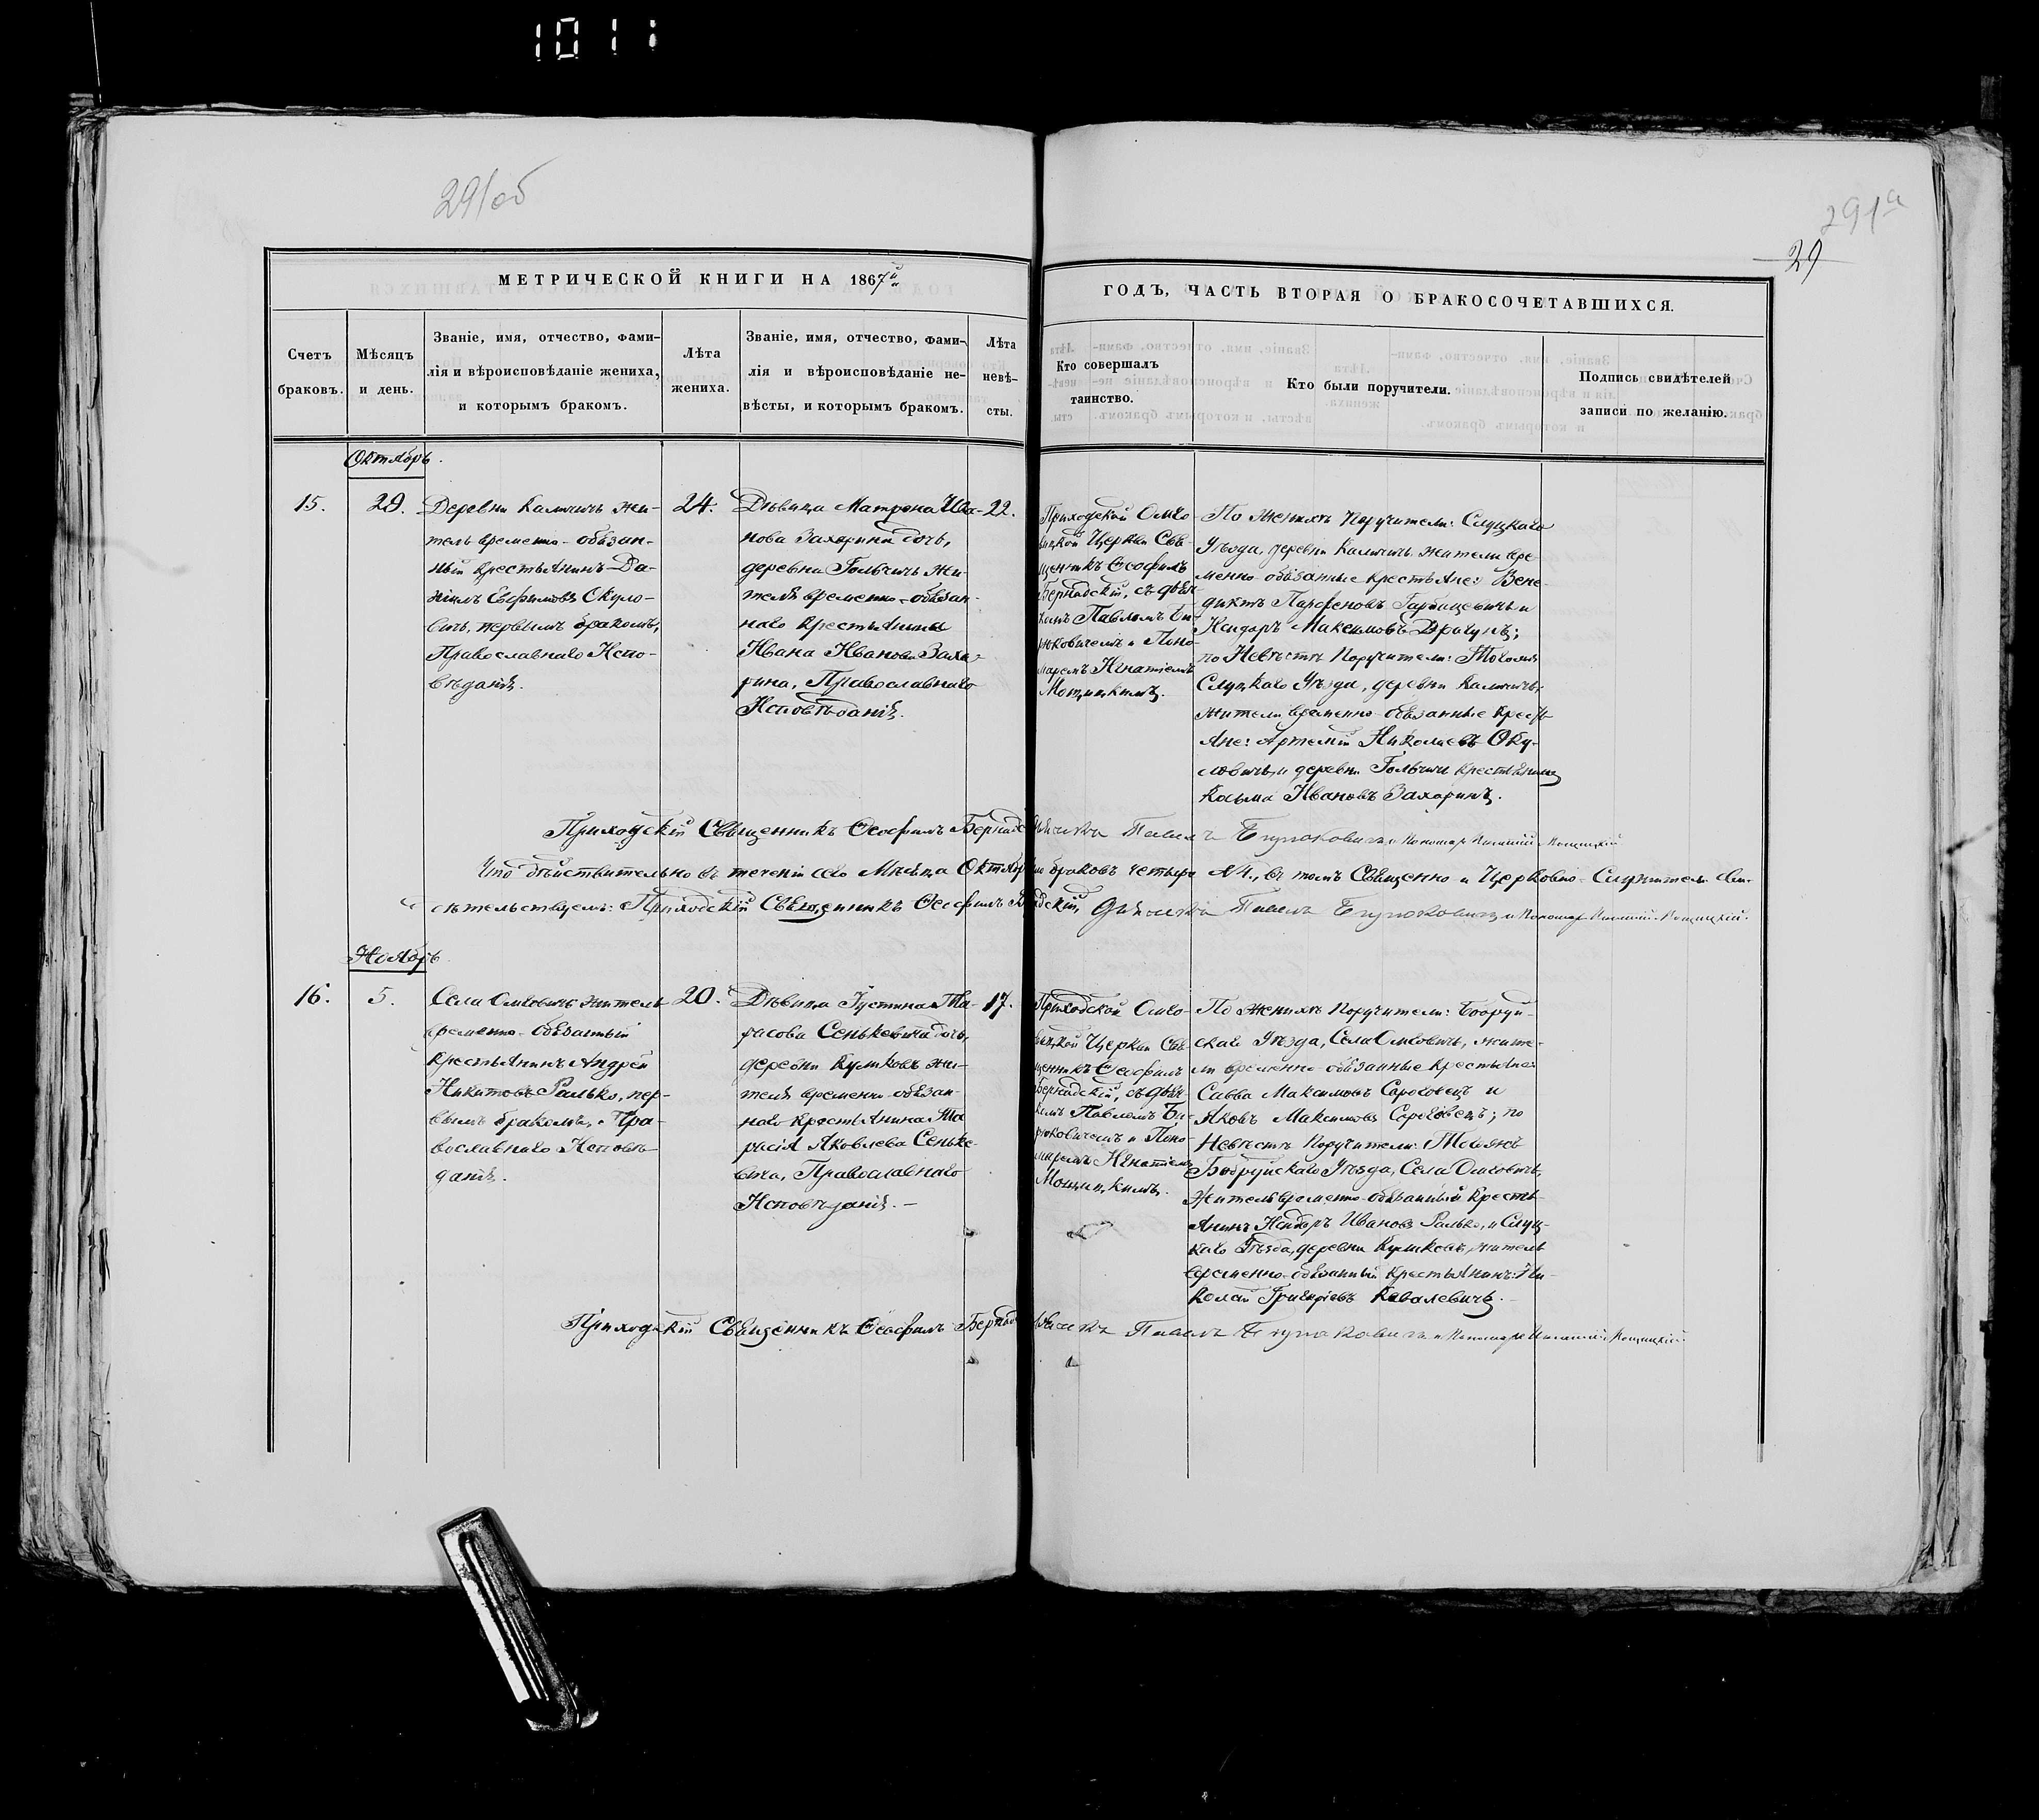 1011
291об
291а
29
МЕТРИЧЕСКОЙ КНИГИ НА 1867й
ГОДЪ, ЧАСТЬ ВТОРАЯ О БРАКОСОЧЕТАВШИХСЯ.
Счетъ
браковъ.
Мѣсяцъ
и день.
Званіе, имя, отчество, фами-
лія и вѣроисповѣданіе жениха,
и которымъ бракомъ.
Лѣта
жениха.
Званіе, имя, отчество, фами-
лія и вѣроисповѣданіе не-
вѣсты, и которымъ бракомъ.
Лѣта
невѣ-
сты.
Кто совершалъ
таинство.
Кто были поручители.
Подпись свидѣтелей
записи по желанію.
Октябрь.
15.
29.
Деревни Калчичь жи-
тель временно-обязан-
ный крестьянинъ Да-
ніилъ Ефимовъ Окуло-
вичъ, первымъ бракомъ,
Православнаго Испо-
вѣданія.
24.
Дѣвица Матрона Ива-
нова Захарина дочь,
деревни Гольчичь жи-
теля временно-обязан-
наго крестьянина
Ивана Иванова Заха-
рина, Православнаго
Исповѣданія.
22.
Приходской Омго-
вицкой Церкви Свя-
щенникъ Ѳеофилъ
Бернадскій, съ дьяч-
комъ Павломъ Би-
рюковичемъ и Поно-
маремъ Игнатіемъ
Мощицкимъ.
По Женихѣ Поручители: Слуцкаго
Уѣзда, деревни Калчичь жители вре-
менно-обязанные крестьяне: Вене-
диктъ Парфеновъ Гарбацевичъ и
Исидоръ Максимовъ Драгунъ;
по Невѣстѣ Поручители: Тогоже
Слуцкаго Уѣзда, деревни Калчичь,
жители временно-обязанные кресть-
яне: Артемій Николаевъ Оку-
ловичъ, и деревни Гольчичь крестьянинъ
Козьма Ивановъ Захаринъ.
Приходскій Священникъ Ѳеофилъ Бернадскій Дьячекъ Павелъ Бирюковичъ и Пономарь Игнатій Мощицкій
Что дѣйствительно въ теченіи сего Мѣсяца Октября браковъ четыре №4., въ томъ Священно и Церковно-Служители Сви-
дѣтельствуемъ: Приходскій Священникъ Ѳеофилъ Бернадскій, Дьячекъ Павелъ Бирюковичъ и Пономарь Игнатій Мощицкій.
Ноябрь
16.
5.
Села Омговичь житель
временно-обязанный
крестьянинъ Андрей
Никитовъ Ралько, пер-
вымъ бракомъ, Пра-
вославнаго Исповѣ-
данія.
20.
Дѣвица Густина Та-
расова Сенькевича дочь,
деревни Куликовъ жи-
теля временно-обязан-
наго крестьянина Та-
расія Яковлева Сеньке-
вича, Православнаго
Исповѣданія. –
17.
Приходской Омго-
вицкой Церкви Свя-
щенникъ Ѳеофилъ
Бернадскій, съ дьяч-
комъ Павломъ Би-
рюковичемъ и Поно-
маремъ Игнатіемъ
Мощицкимъ.
По Женихѣ Поручители: Бобруй-
скаго Уѣзда, Села Омговичь, жите-
ли временно-обязанные крестьяне:
Савва Максимовъ Сероговецъ и
Яковъ Максимовъ Сероговецъ; по
Невѣстѣ Поручители: Тогоже
Бобруйскаго Уѣзда, Села Омговичь,
Житель временно-обязанный кресть-
янинъ Исидоръ Ивановъ Ралько, и Слуц-
каго Уѣзда, деревни Куликовъ, житель
временно-обязанный крестьянинъ: Ни-
колай Григоріевъ Ковалевичъ. –
Приходскій Священникъ Ѳеофилъ Бернадскій Дьячекъ Павелъ Бирюковичъ и Пономарь Игнатій Мощицкій.